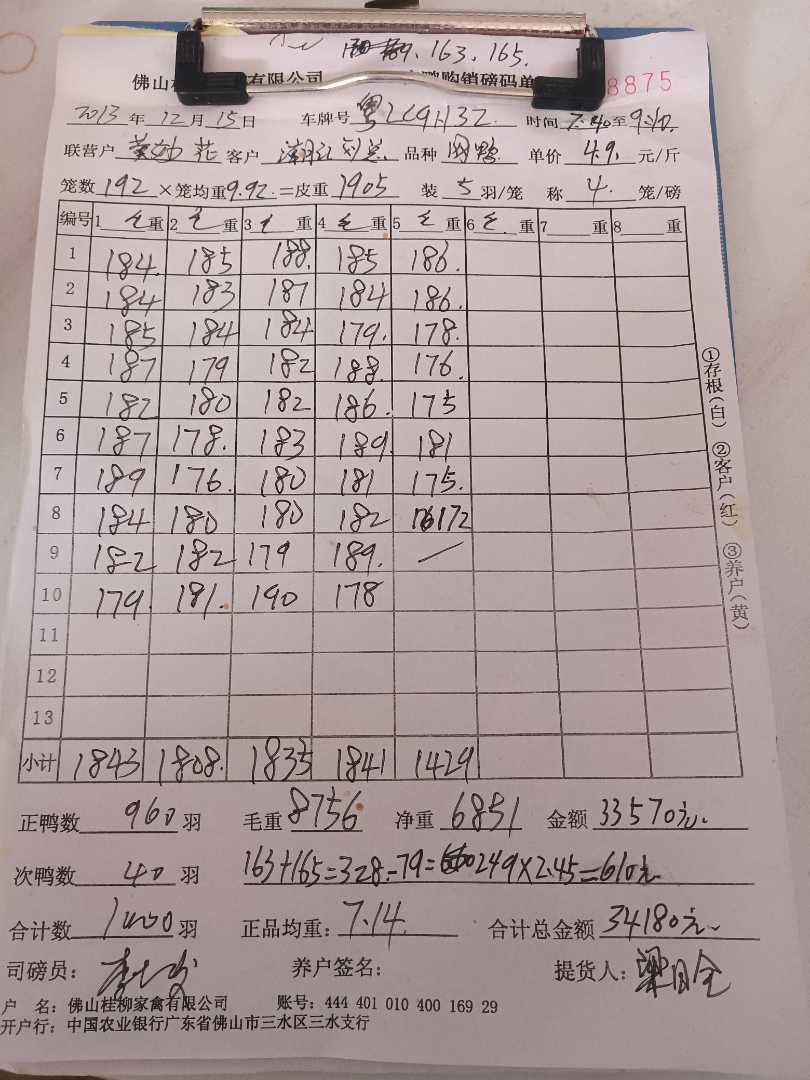 163.165.
佛山桂 禽有限公司 鹏购销磅码单 8875
2013年12月15日 车牌号 粤 时间7:40至9:10.
联营户 客户 品种 鸭 单价4.9.元/斤
笼数192×笼均重9.92.=皮重1905 装5羽/笼 称4.笼/磅
编号 1毛重 2毛重 3毛重 4毛重 5毛重 6毛.重 7重 8重
1 184. 185 188. 185 186.
2 184 183 187 184 186.
3 185 184 184 179. 178.
4 187 179 182 188. 176.
5 182 180 182 186. 175
6 187 178. 183 189. 181
7 189 176. 180 181 175.
8 184 180 180 182 172
9 182 182 179 189. —
10 179. 181. 190 178
11
12
13
小计 1843 1808. 1835 1841 1429
正鸭数960羽 毛重8756 净重6851 金额33570元.
次鸭数40羽 163+165=328-79=249×2.45=610元
合计数1000羽 正品均重:7.14. 合计总金额34180元
司磅员: 养户签名: 提货人:
户 名:佛山桂柳家禽有限公司 账号:444 401 010 400 169 29
开户行:中国农业银行广东省佛山市三水区三水支行
①存根(白) ②客户(红) ③养户(黄)